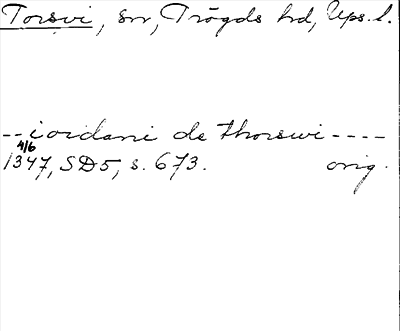 Torsvi, sn, Trögds hd, Ups. l.
-- iordani de thorswi ----
4/6
1347, SD5, s. 673. orig.